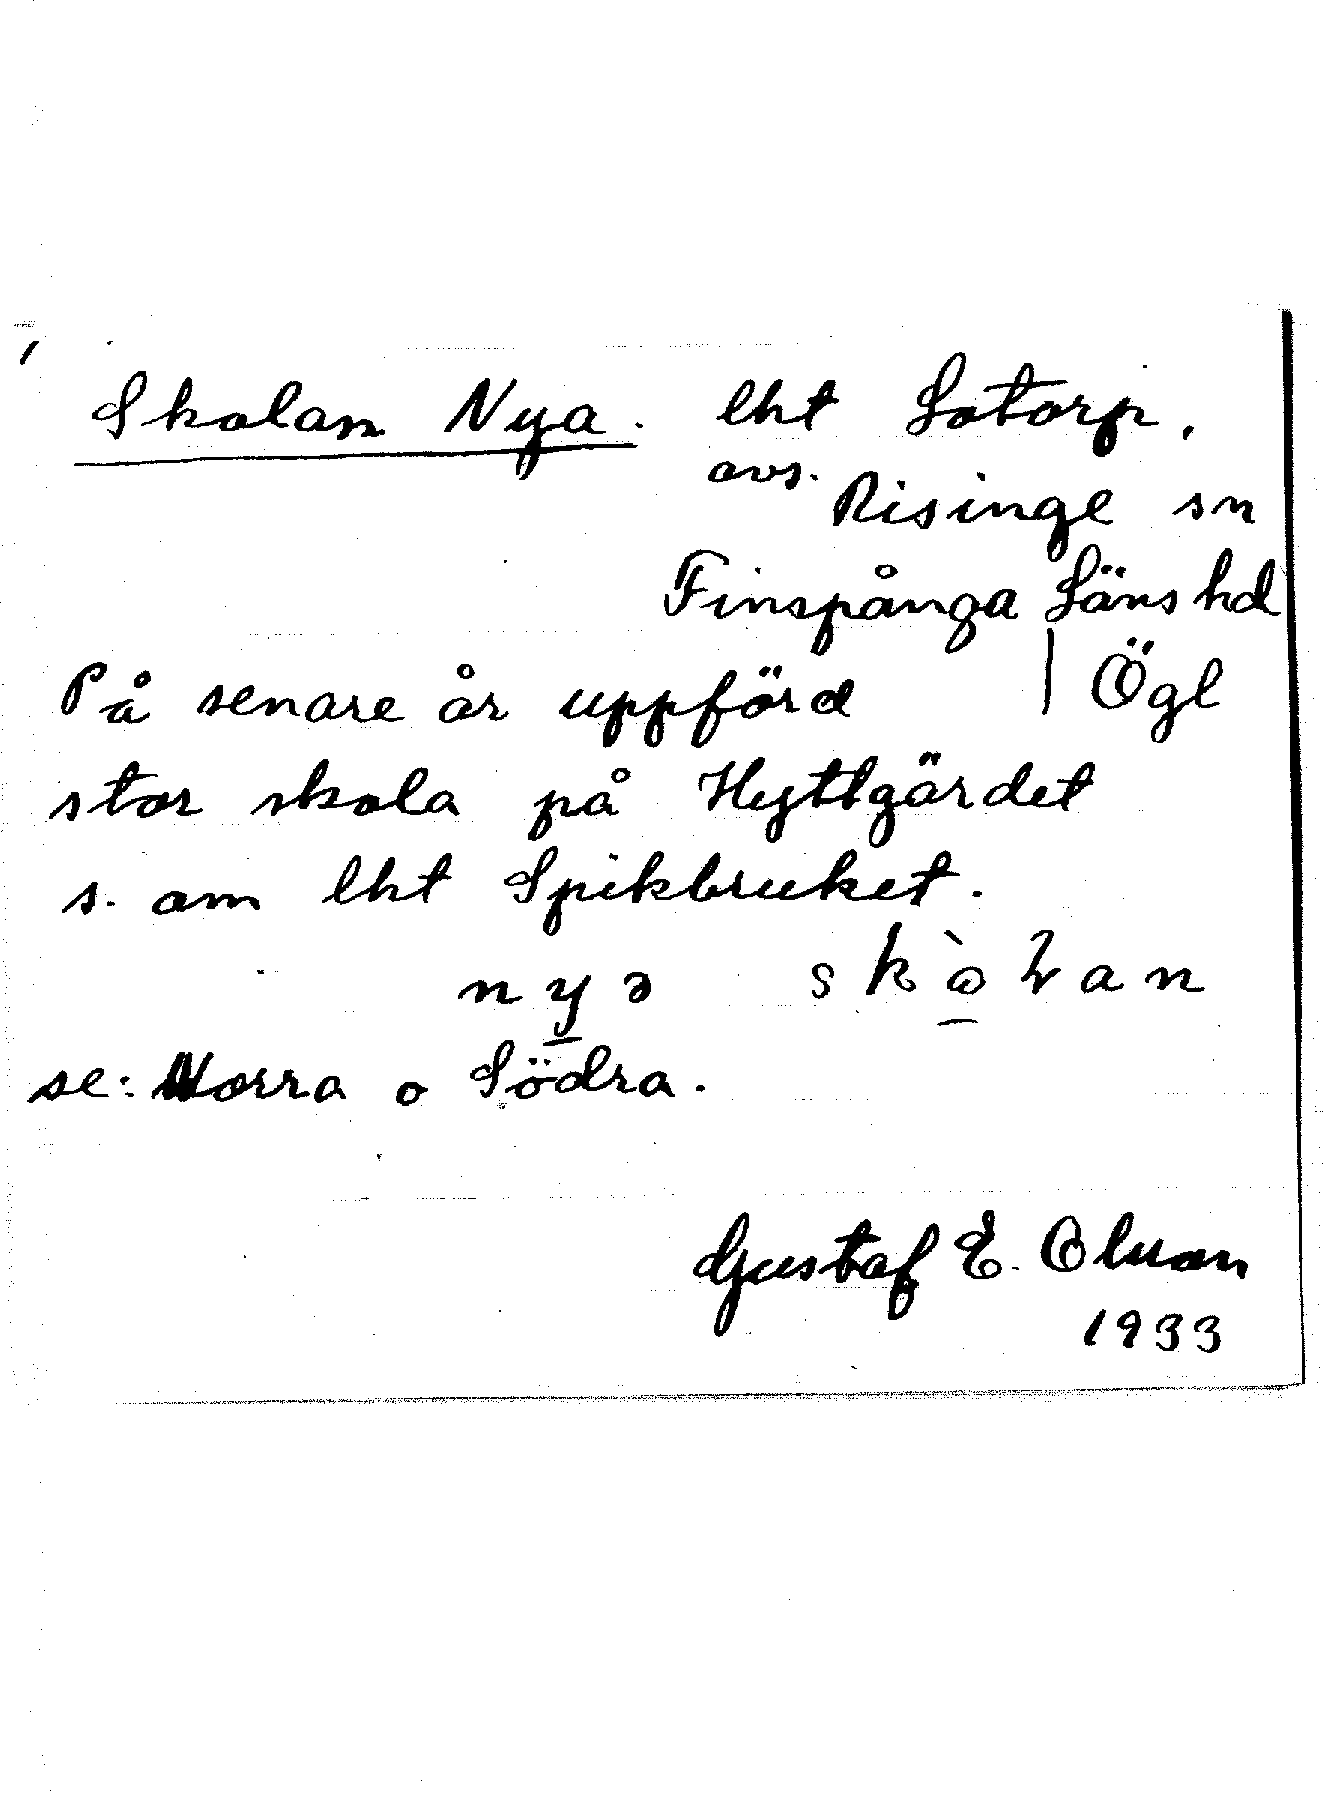 Skolan Nya. lht Lotorp.
avs.
Risinge sn
Finspånga Läns hd
På senare år uppförd | Ögl
stor skola på Hyttgärdet
s. om lht Spikbruket.
nyə skòɽan
se: Norra o Södra.
Gustaf E. Olsson
1933